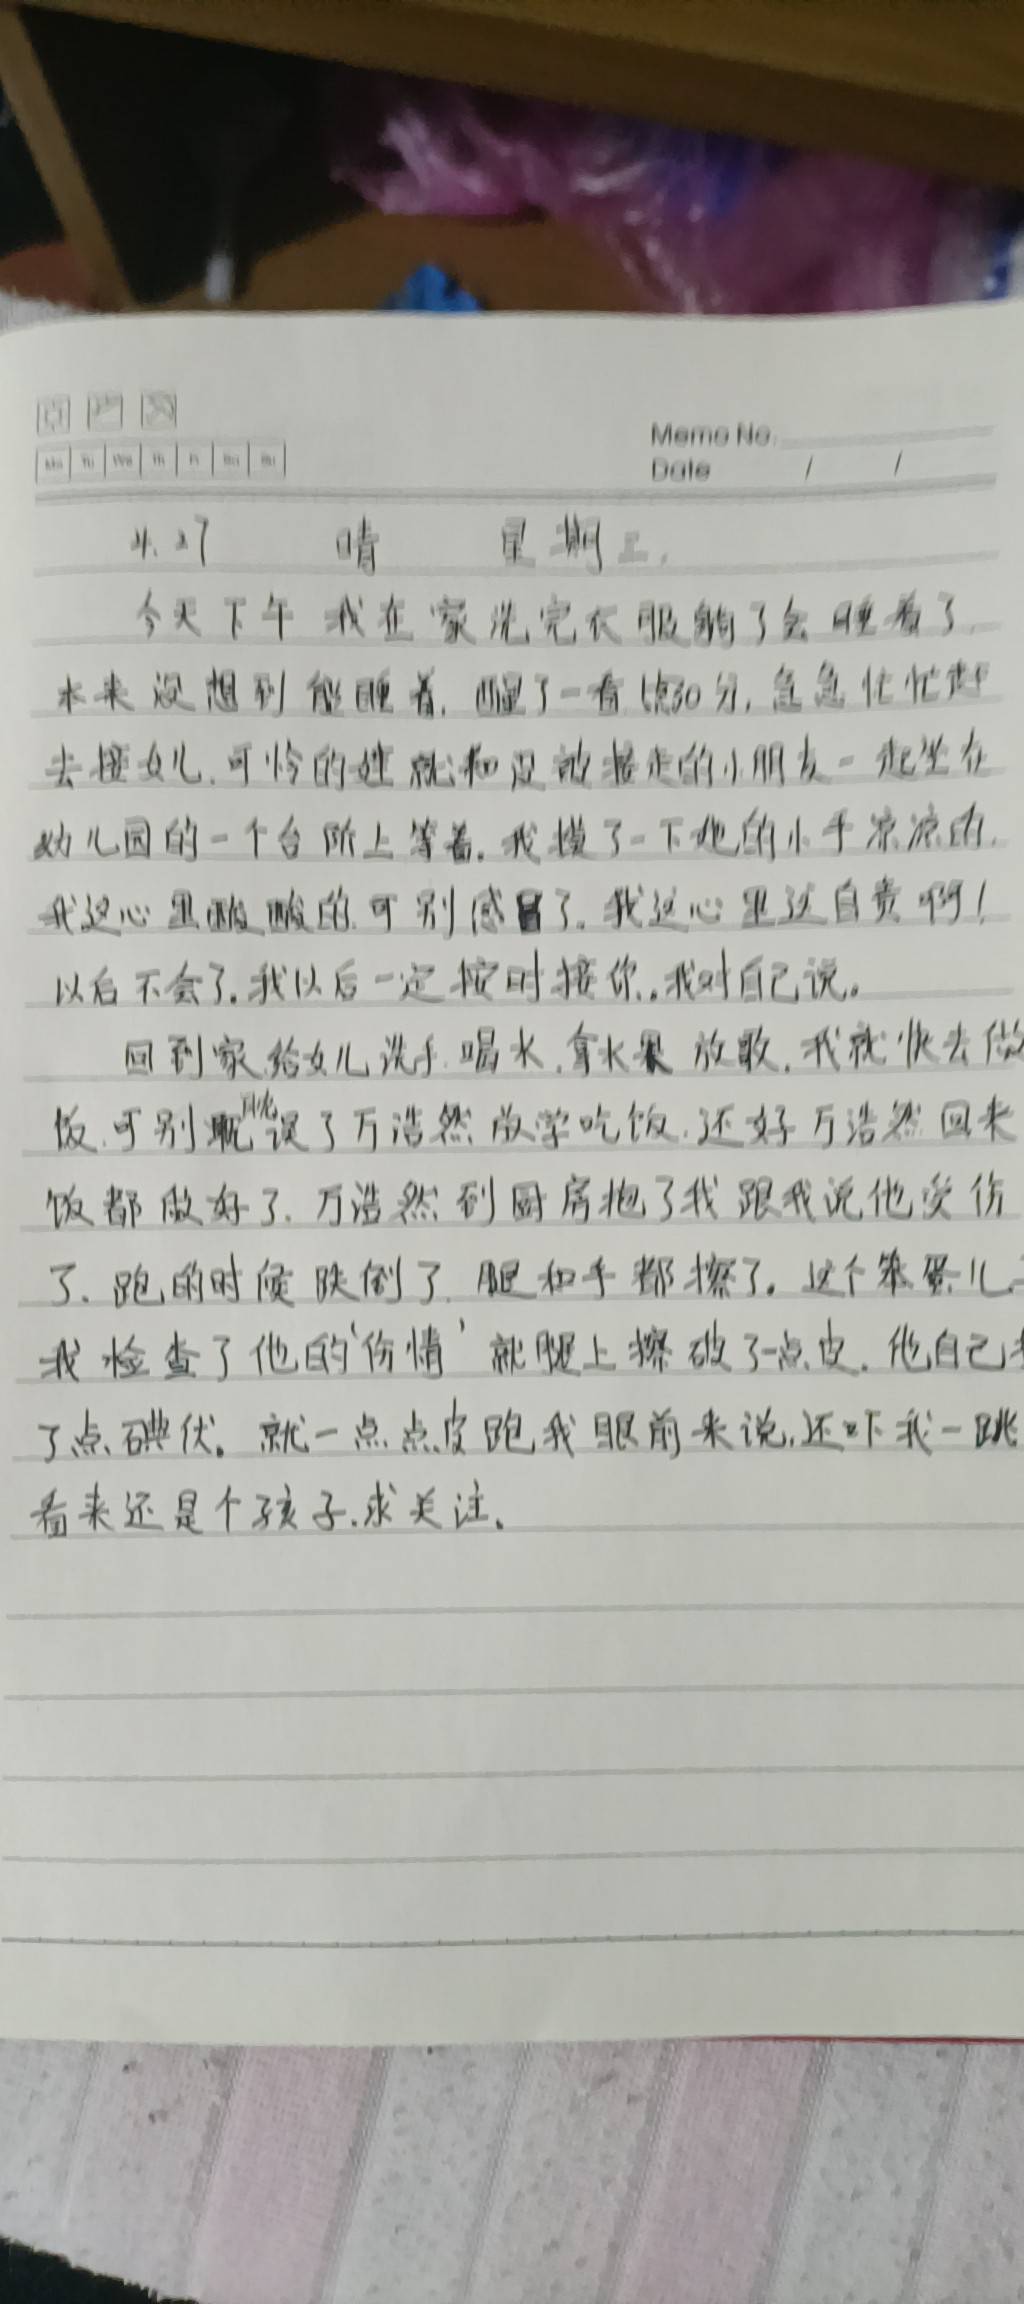 Mo Tu We Th Fr Sa Su
Memo No.
Date / /
4.27 晴 星期三.
今天下午我在家洗完衣服躺了会睡着了.
本来没想到能睡着.醒了一看 点30分,急急忙忙起
去接女儿.可怜的娃就和没被接走的小朋友一起坐在
幼儿园的一个台阶上等着.我摸了一下她的小手凉凉的.
我这心里酸酸的.可别感冒了.我这心里这自责啊!
以后不会了.我以后一定按时接你.我对自己说。
回到家给女儿洗手.喝水.拿水果 放歌.我就快去做
饭.可别耽误了万浩然放学吃饭.还好万浩然回来
饭都做好了.万浩然到厨房抱了我跟我说他受伤
了.跑的时候跌倒了.腿和手都擦了。这个笨蛋儿
我检查了他的‘伤情’就腿上擦破了一点皮.他自己
了点碘伏。就一点点皮跑我眼前来说.还吓我一跳
看来还是个孩子.求关注.